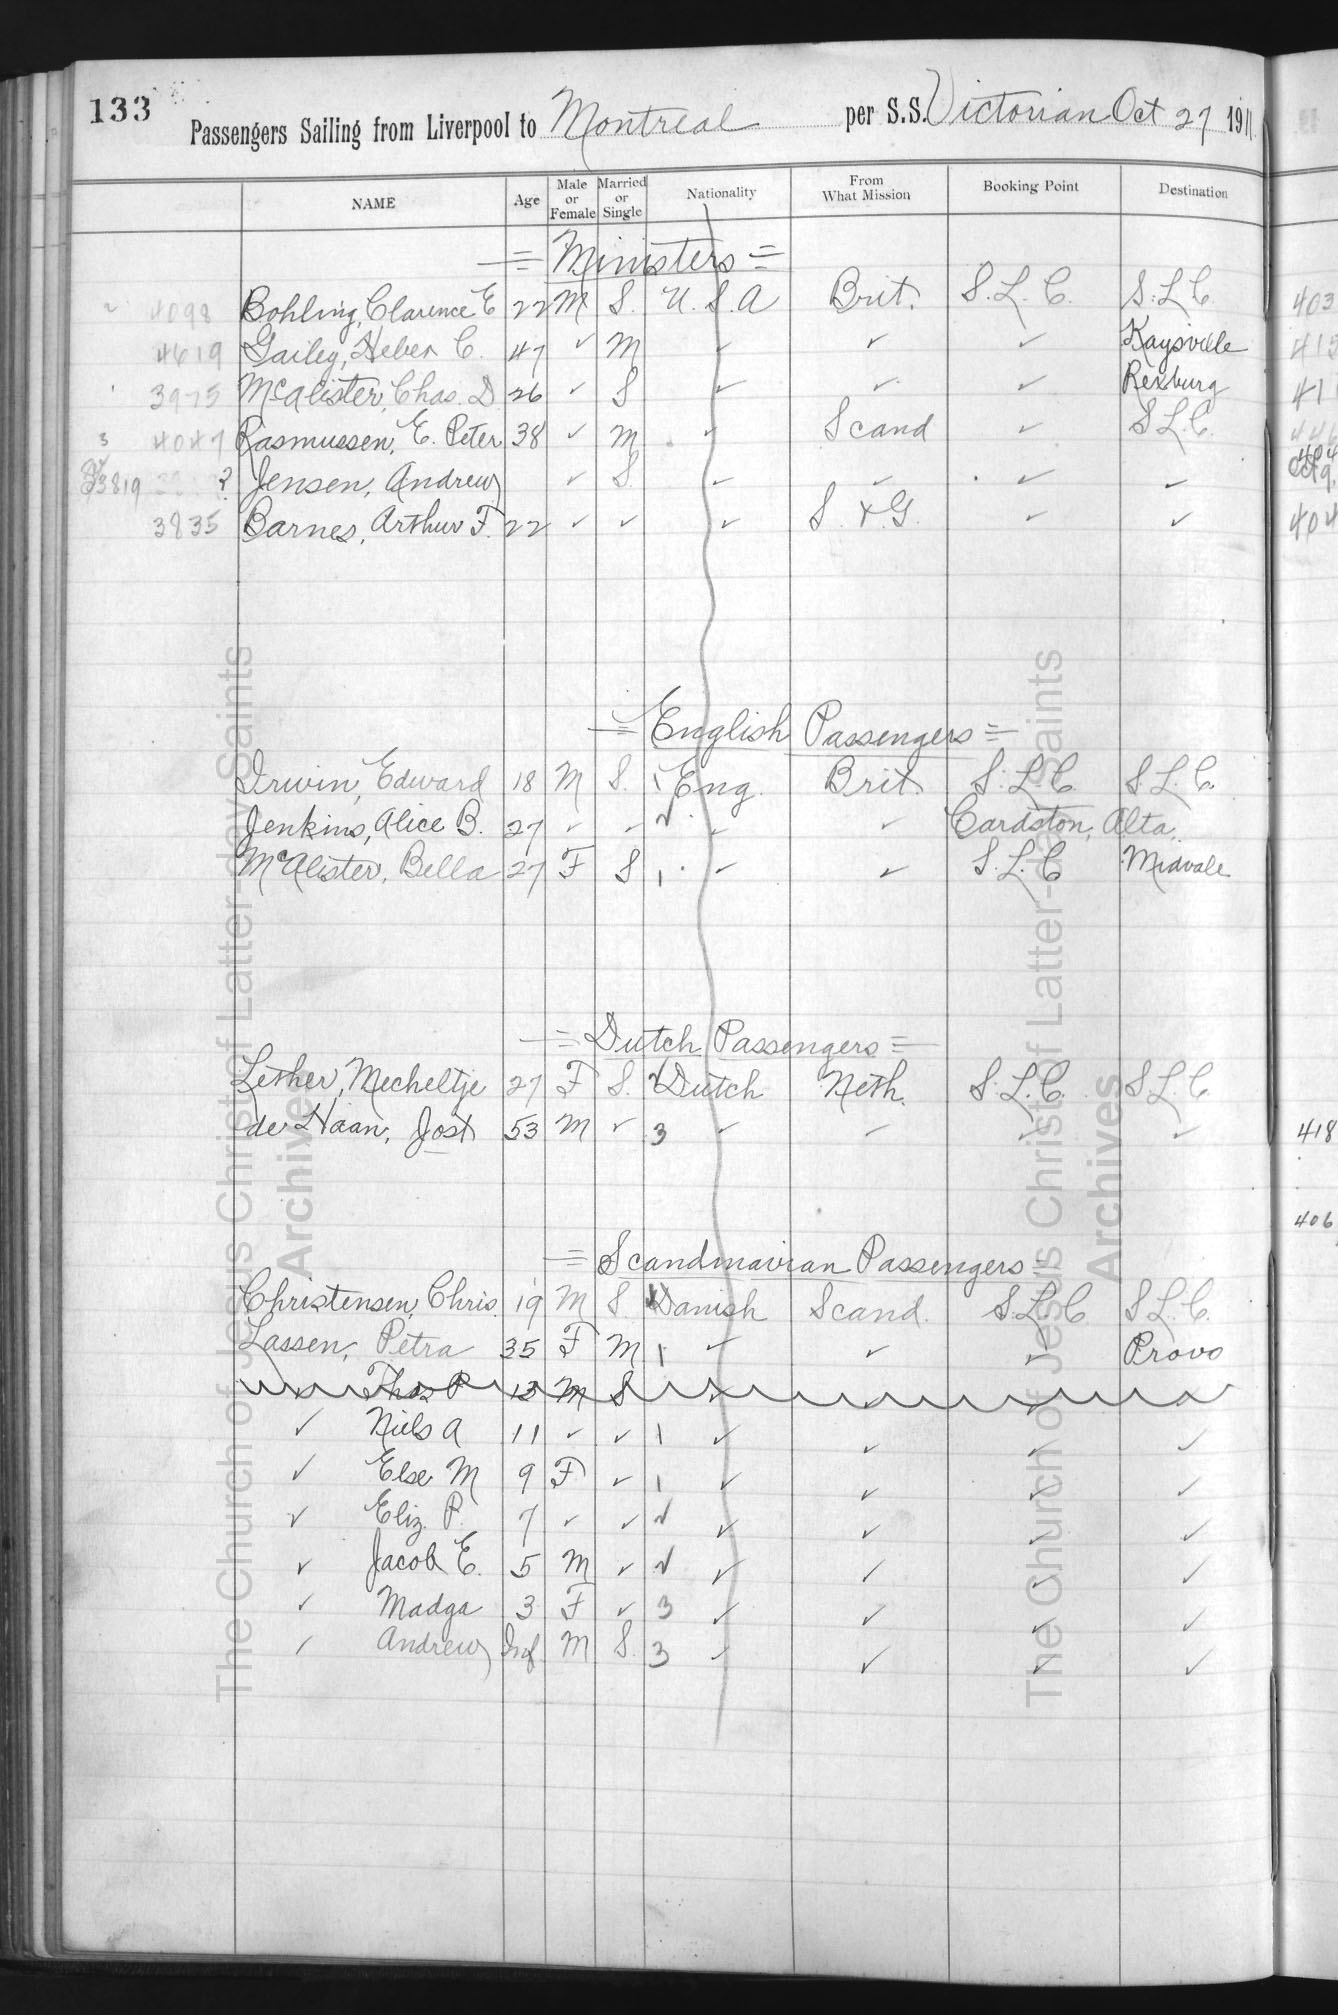 133
Passengers Sailing from Liverpool to Montreal per S.S. Victorian Oct 27 1911
NAME Age Male or Female Married or Single Nationality From What Mission Booking Point Destination
= Ministers =
4098 Bohling, Clarence E 22 M S. U.S.A Brit. S.L.C. S.L.C.
4619 Gailey, Heber C. 47 ✓ M ✓ ✓ ✓ Kaysville
3975 McAlister, Chas. D 26 ✓ S ✓ ✓ ✓ Rexburg
3 4047 Rasmussen, E. Peter 38 ✓ M ✓ Scand ✓ S.L.C.
3819 ? Jensen, Andrew ✓ S. ✓ ✓ ✓ ✓
3835 Barnes, Arthur F. 22 ✓ ✓ ✓ S. & G. ✓ ✓
= English Passengers =
Irwin, Edward 18 M S. 1 Eng. Brit. S.L.C. S.L.C.
Jenkins, Alice B. 27 ✓ ✓ ✓ ✓ ✓ Cardston, Alta.
McAlister, Bella 27 F S 1 ✓ ✓ S.L.C Midvale
= Dutch Passengers =
Lether, Mecheltje 27 F S. Dutch Neth. S.L.C. S.L.C.
de Haan, Jost 53 M ✓ 3 ✓ ✓ ✓ ✓
= Scandinavian Passengers =
Christensen, Chris. 19 M S. Danish Scand. S.L.C S.L.C.
Lassen, Petra 35 F M 1 ✓ ✓ ✓ Provo
✓ Thos P 13 M S ✓ ✓ ✓ ✓
✓ Niels A 11 ✓ ✓ 1 ✓ ✓ ✓ ✓
✓ Else M 9 F ✓ 1 ✓ ✓ ✓ ✓
✓ Eliz. P. 7 ✓ ✓ ✓ ✓ ✓ ✓ ✓
✓ Jacob E. 5 M ✓ ✓ ✓ ✓ ✓ ✓
✓ Madga 3 F ✓ 3 ✓ ✓ ✓ ✓
✓ Andrew Inf. M S. 3 ✓ ✓ ✓ ✓
418
406
The Church of Jesus Christ of Latter-day Saints
Archives
The Church of Jesus Christ of Latter-day Saints
Archives